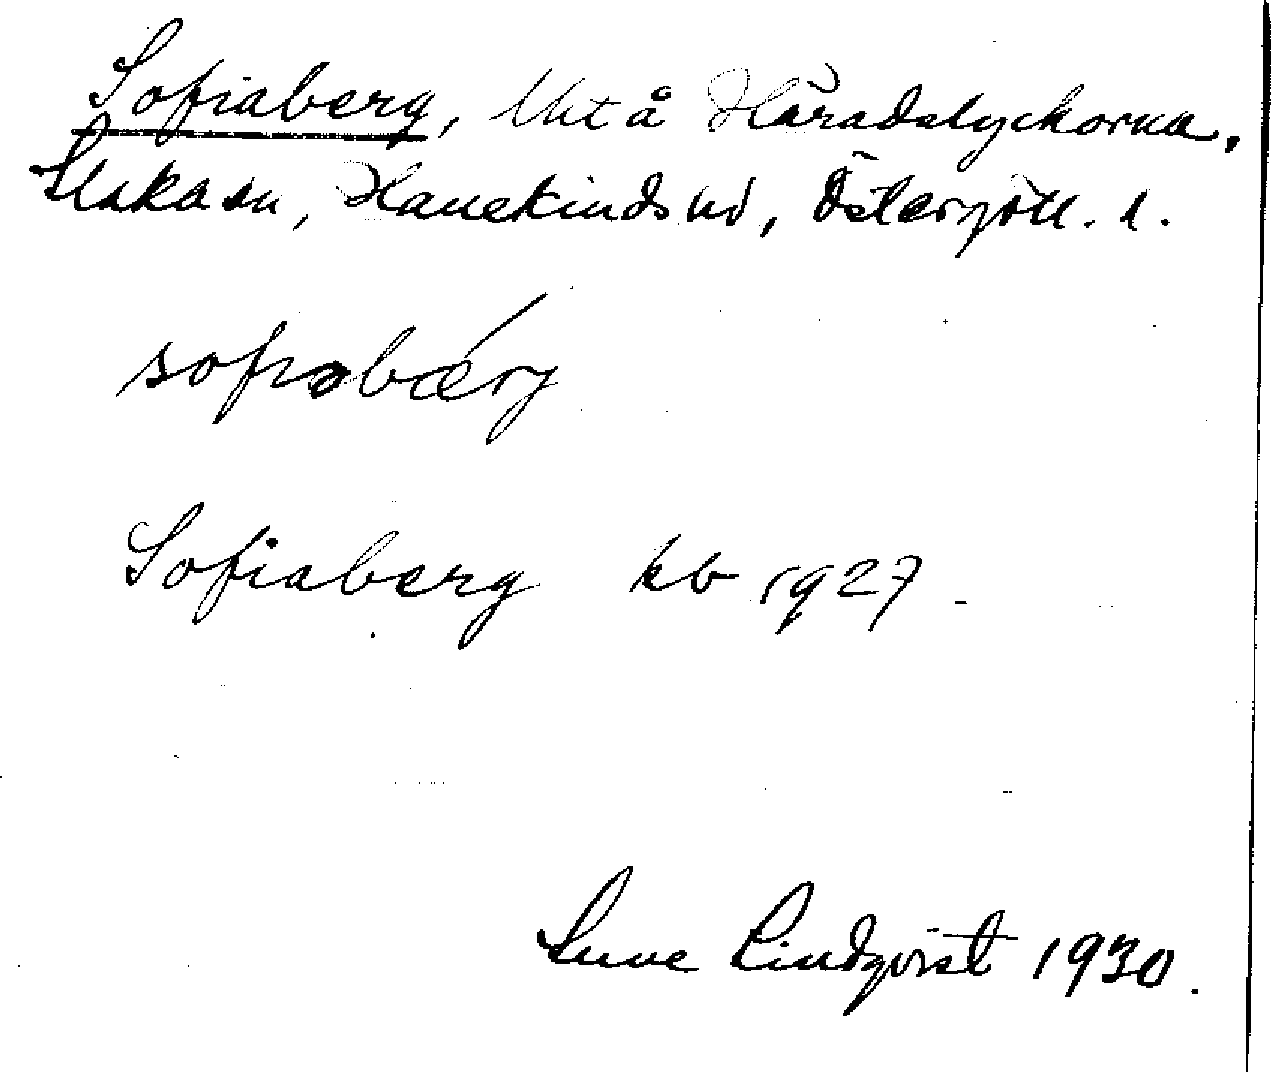 Sofiaberg, lht å Häradslyckorna,
Slaka sn, Hanekinds hd, Östergötl. l.
sofiəbærj
Sofiaberg kb 1927
Sune Lindqvist 1930.